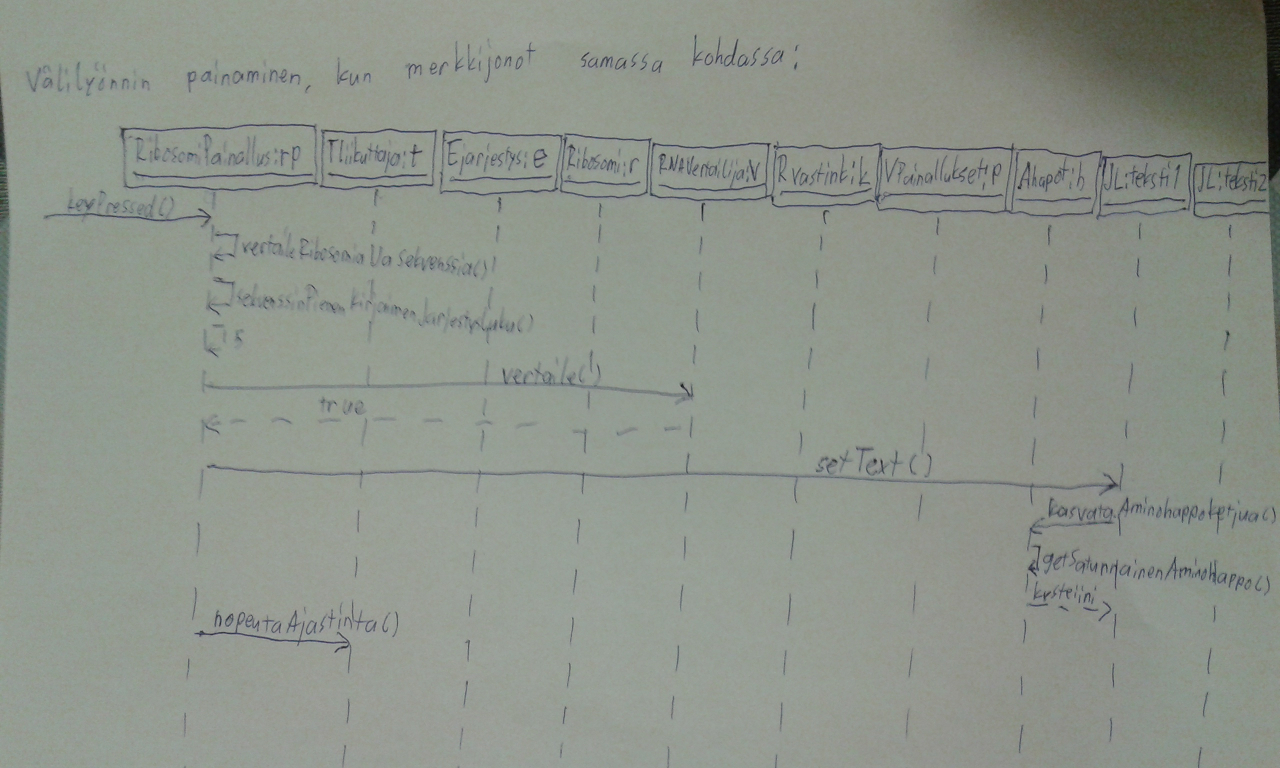 Välilyönnin painaminen, kun merkkijonot samassa kohdassa:
RibosomiPainallus:rp TLiikuttaja:t Ejarjestys:e Ribosomi:r RNAVertailija:v Rvastinki:k VPainallukset:p Ahapot:h JL:teksti1 JL:teksti2
keyPressed()
vertaileRibosomiaJaSekvenssia()
sekvenssinPienenKirjaimenJarjestysluku()
5
vertaile()
true
setText()
kasvataAminohappoketjua()
getSatunnainenAminoHappo()
kysteiini
nopeutaAjastinta()